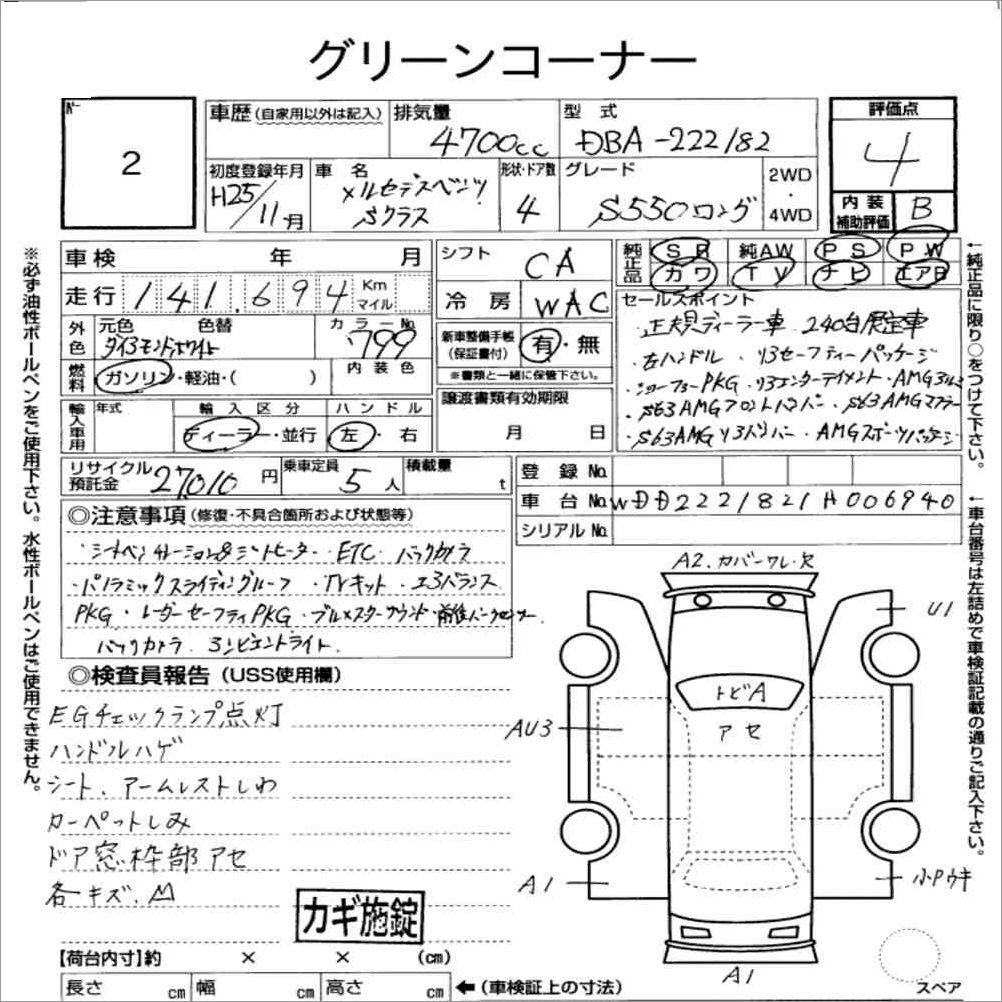 グリーンコーナー
2
車歴(自家用以外は記入)
排気量
4700cc
型式
DBA-222182
評価点
4
初度登録年月
H25/11月
車名
メルセデスベンツ
Sクラス
形状・ドア数
4
グレード
S550ロング
2WD
・
4WD
内装
補助評価
B
車検 年 月
走行 141,694 Km
マイル
外色
元色 色替
ダイヤモンドホワイト
カラーNo.
799
内装色
燃料
ガソリン・軽油・( )
輸入車用
年式
輸入区分
ディーラー・並行
ハンドル
左・右
シフト
CA
冷房
WAC
新車整備手帳
(保証書付)
有・無
※書類と一緒に保管下さい。
譲渡書類有効期限
月 日
純正品
SR 純AW PS PW
カワ TV ナビ エアB
セールスポイント
正規ディーラー車 240台限定車
左ハンドル・リヤセーフティーパッケージ
・ショーファーPKG・リヤエンターテイメント・AMGアルミ
・S63AMGフロントバンパー・S63AMGマフラー
・S63AMGリヤバンパー・AMGスポーツパッケージ
リサイクル
預託金
27010円
乗車定員
5人
積載量
t
登録No.
車台No. WDD2221821A006940
シリアルNo.
◎注意事項(修復・不具合箇所および状態等)
シートベンチレーション&シートヒーター・ETC・バックカメラ
・パノラミックスライディングルーフ・TVキット・エアバランス
PKG・レーダーセーフティPKG・ブルメスターサウンド・前後パークセンサー
バックカメラ・アンビエントライト
◎検査員報告(USS使用欄)
EGチェックランプ点灯
ハンドルハゲ
シート、アームレストしわ
カーペットしみ
ドア窓枠部アセ
各キズ、凹
カギ施錠
A2.カバーワレ・欠
U1
トビA
アセ
AU3
A1
小Pウキ
A1
スペア
【荷台内寸】約 × × (cm)
長さ cm 幅 cm 高さ cm ←(車検証上の寸法)
※必ず油性ボールペンをご使用下さい。水性ボールペンはご使用できません。
←純正品に限り○をつけて下さい。
←車台番号は左詰めで車検証記載の通りご記入下さい。